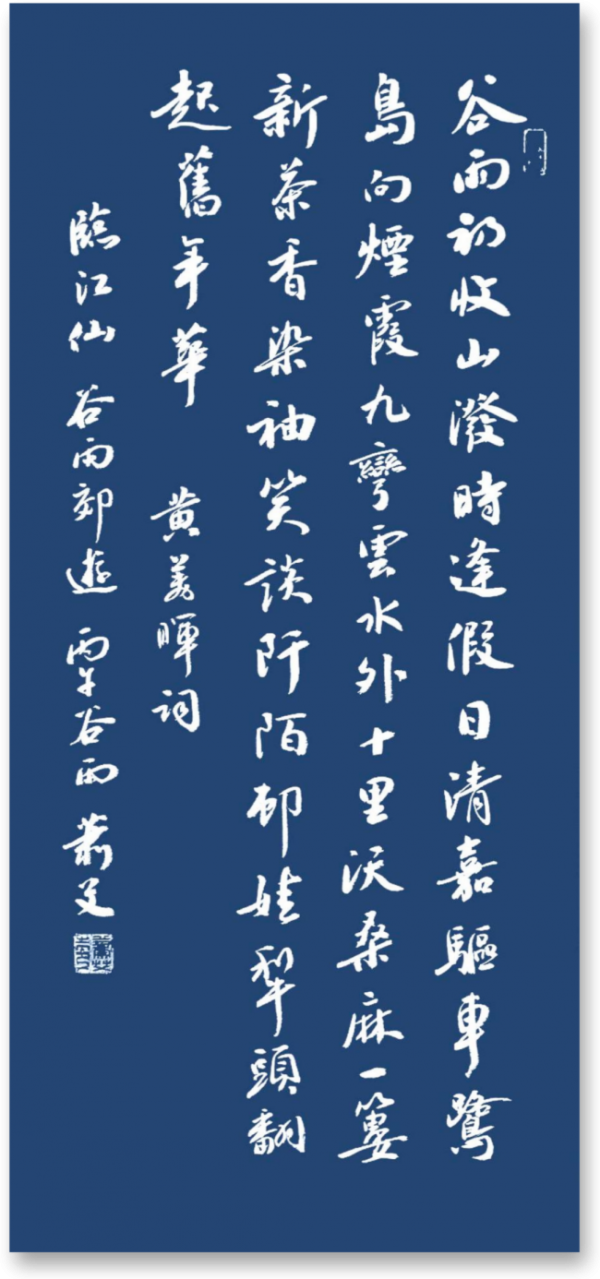 谷雨初收山潑時逢假日清嘉驅車鷺
島向煙霞九彎雲水外十里沃桑麻一簍
新茶香染袖笑談阡陌邨娃犁頭翻
起舊年華 黄美暉詞
臨江仙 谷雨郊遊 丙午谷雨